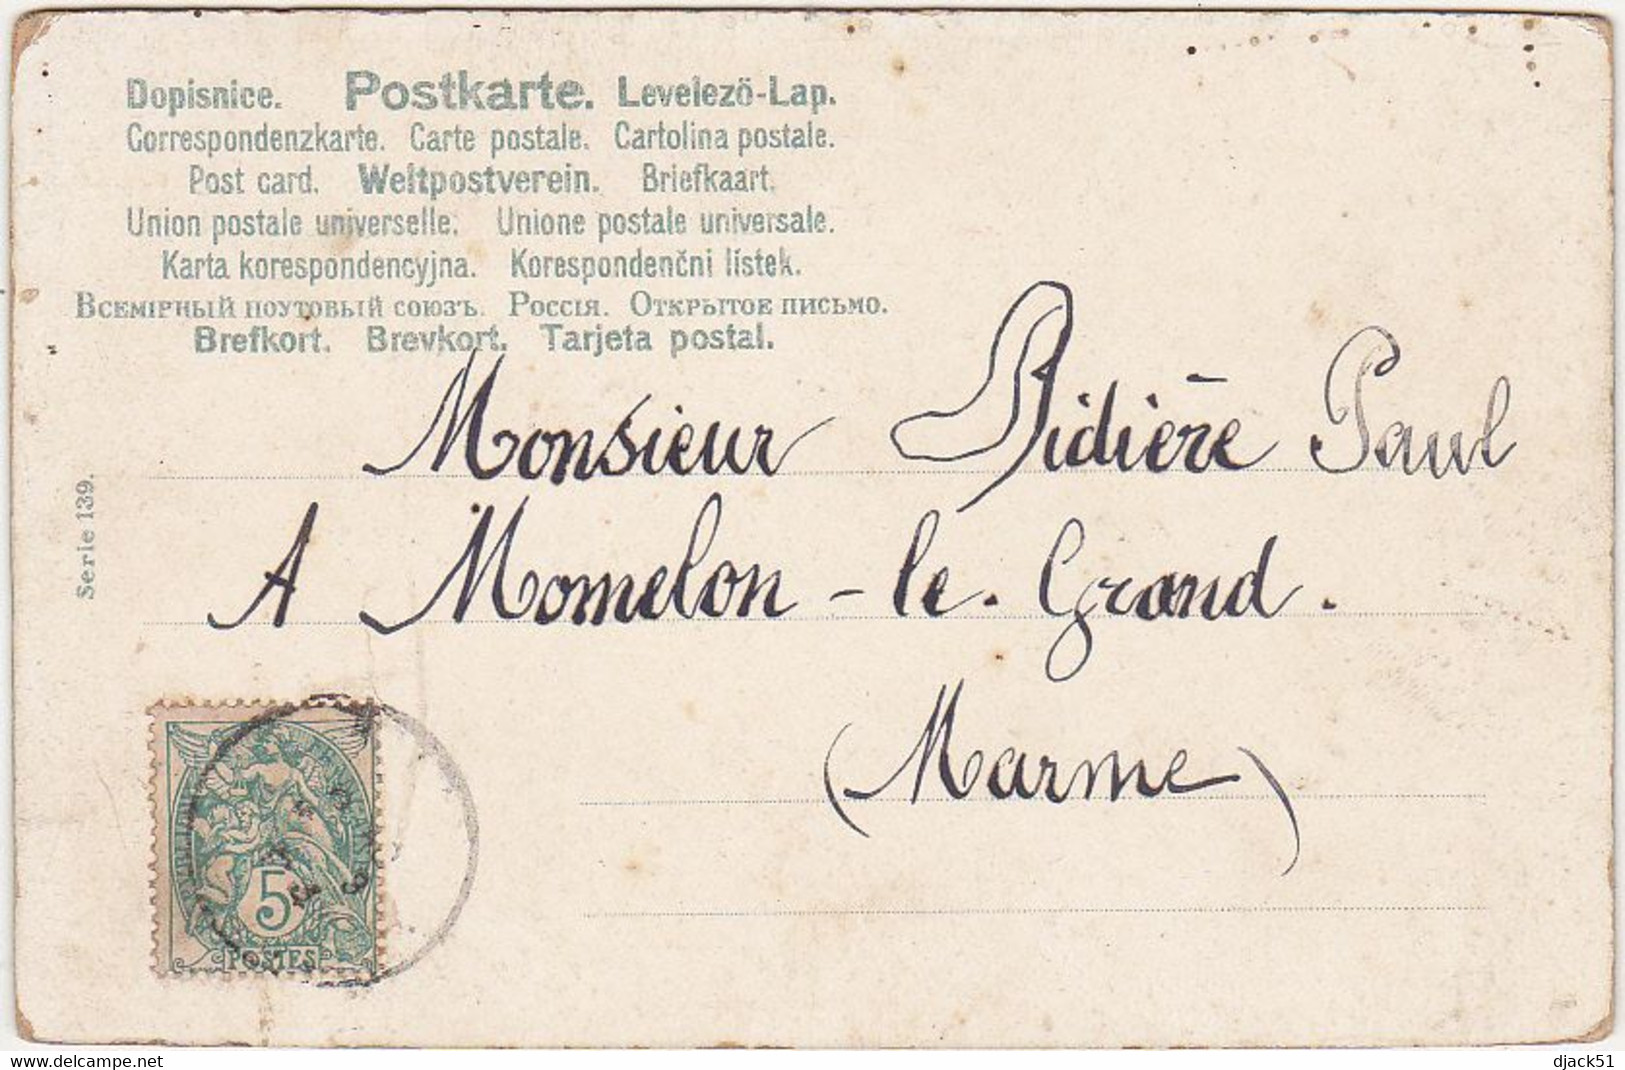 Dopisnice. Postkarte. Levelező-Lap.
Correspondenzkarte. Carte postale. Cartolina postale.
Post card. Weltpostverein. Briefkaart.
Union postale universelle. Unione postale universale.
Karta korespondencyjna. Korespondenčni lístek.
Всемірный поутовый союзъ. Россія. Открытое письмо.
Brefkort. Brevkort. Tarjeta postal.
Monsieur Bidière Paul
A Momelon - le. Grand.
(Marme)
Serie 139.
5
POSTES
www.delcampe.net
djack51